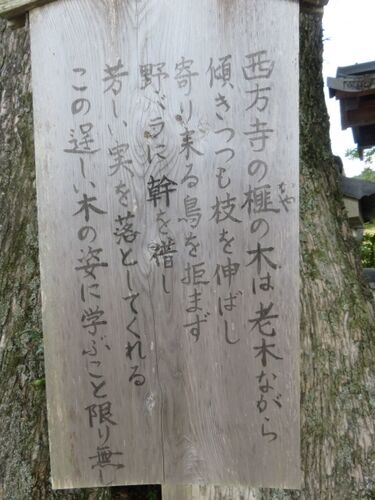 西方寺の榧の木は老木ながら
かや
傾きつつも枝を伸ばし
寄り来る鳥を拒まず
野バラに幹を借し
芳しい実を落としてくれる
この逞しい木の姿に学ぶこと限り無し